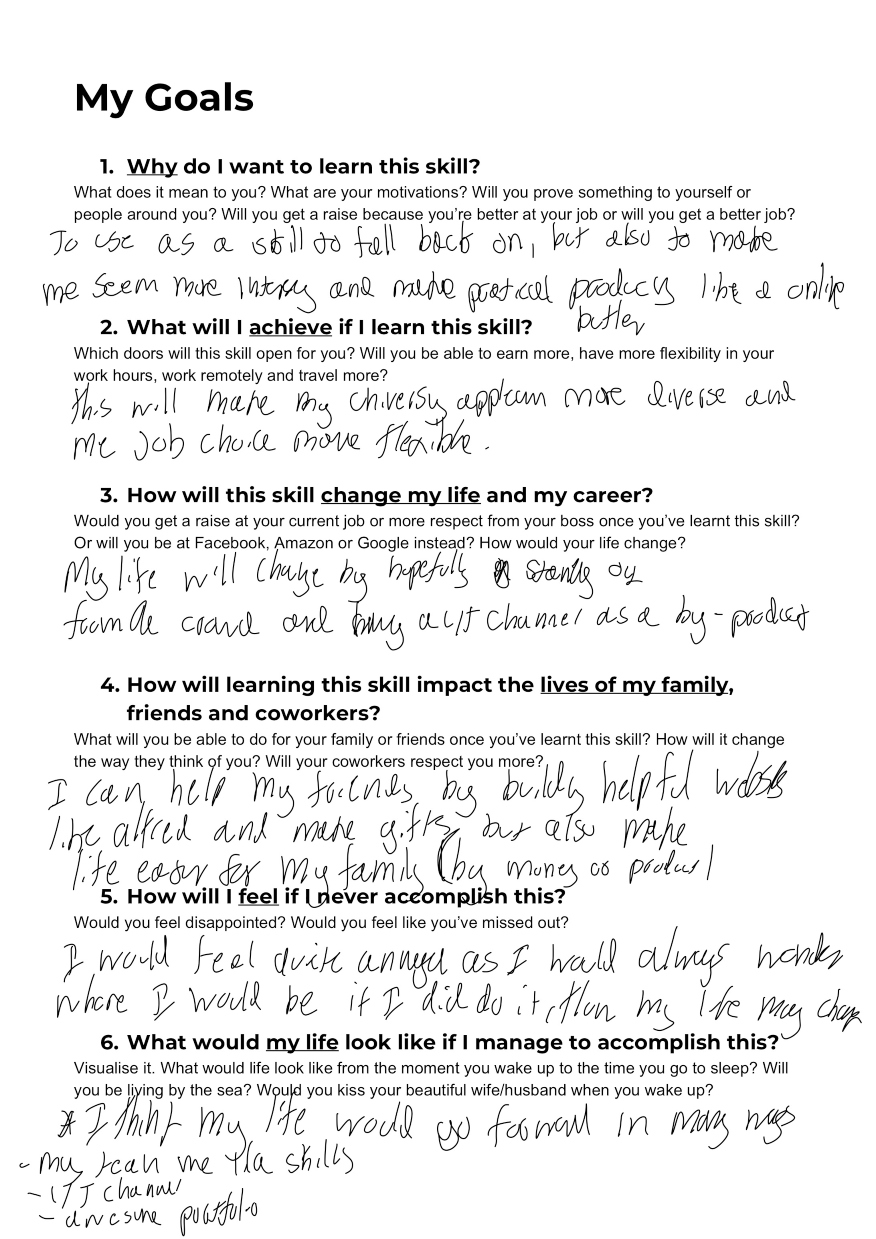 My Goals
1. Why do I want to learn this skill?
What does it mean to you? What are your motivations? Will you prove something to yourself or
people around you? Will you get a raise because you're better at your job or will you get a better job?
To use as a skill to fall back on, but also to make
me seem more and make practical like a online
butler
2. What will I achieve if I learn this skill?
Which doors will this skill open for you? Will you be able to earn more, have more flexibility in your
work hours, work remotely and travel more?
this will make my more diverse and
me job choice more flexible.
3. How will this skill change my life and my career?
Would you get a raise at your current job or more respect from your boss once you've learnt this skill?
Or will you be at Facebook, Amazon or Google instead? How would your life change?
My life will change by hopefully
from the crowd and a channel as a by-product
4. How will learning this skill impact the lives of my family,
friends and coworkers?
What will you be able to do for your family or friends once you've learnt this skill? How will it change
the way they think of you? Will your coworkers respect you more?
I can help my friends by helpful
like alfred and make gifts but also make
life easier for my family (by money or product)
5. How will I feel if I never accomplish this?
Would you feel disappointed? Would you feel like you've missed out?
I would feel quite annoyed as I would always wonder
where I would be if I did do it, my life may change
6. What would my life look like if I manage to accomplish this?
Visualise it. What would life look like from the moment you wake up to the time you go to sleep? Will
you be living by the sea? Would you kiss your beautiful wife/husband when you wake up?
I think my life would go forward in many ways
- my me skills
- channel
-